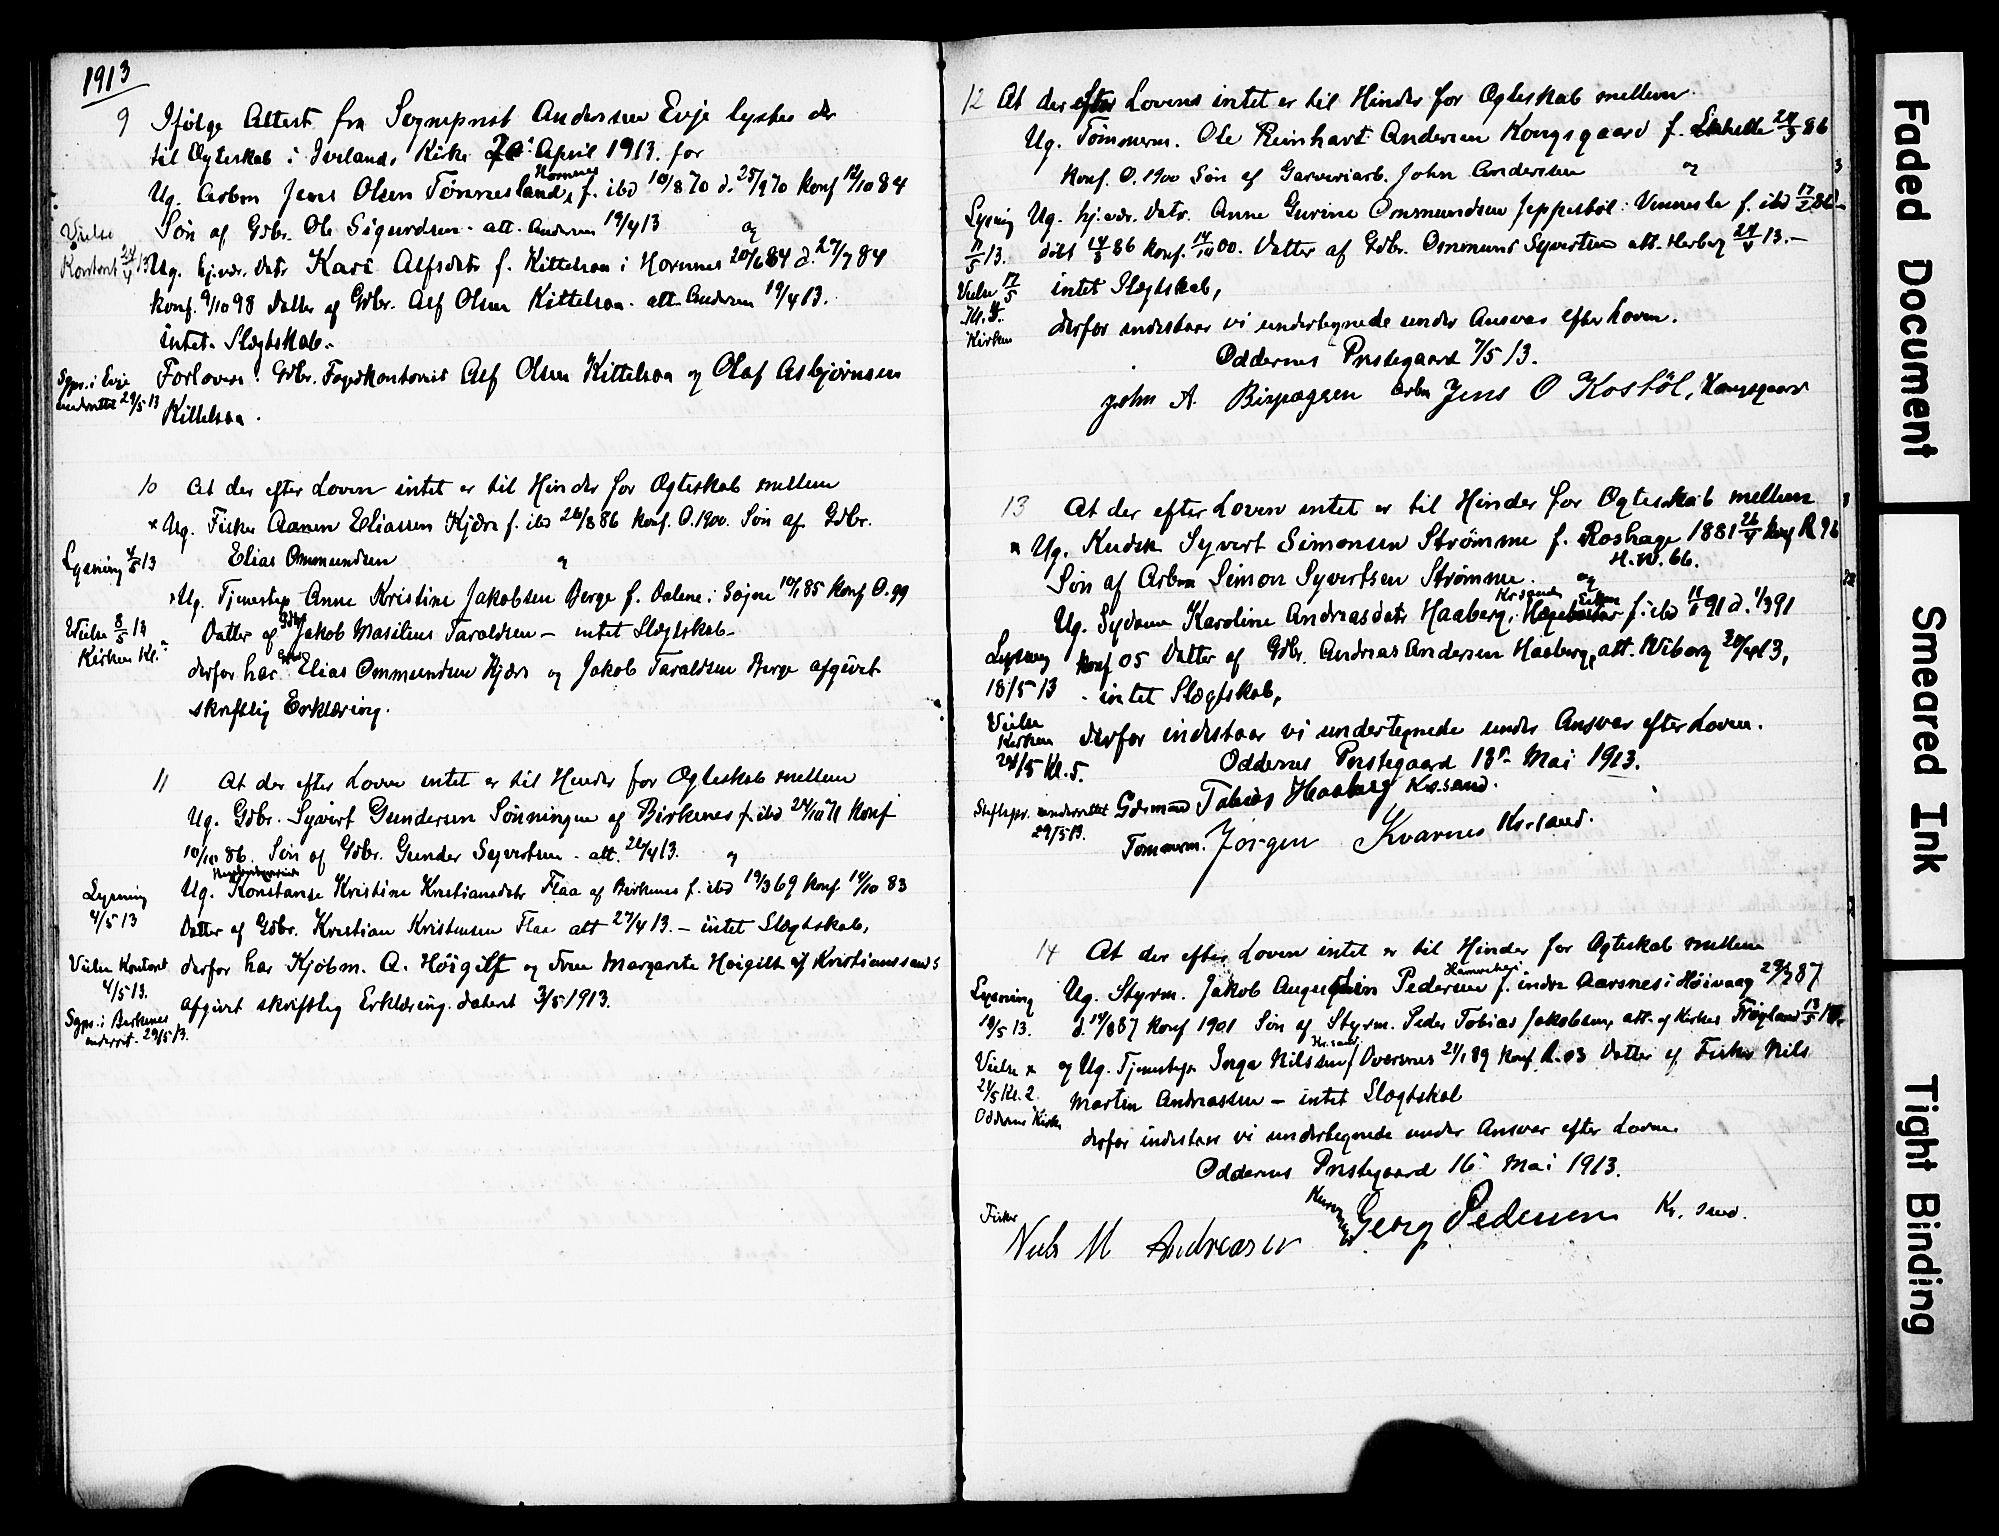 1913
9 Ifølge Attest fra Sognepræst Andersen Evje lystes der
til Ægteskab i Ivelands Kirke 20de April 1913. for
Hornnes
Ug. Arbm Jens Olsen Tønnesland, f. ibd 10/8 70 d. 25/9 70 Konf 12/10 84
Søn af Gdbr. Ole Sigurdsen. att. Andersen 19/4 13 og
Vielse
Kontoret 24/4 13
Ug. hj.vær. Datr Kari Alfsdatr f. Kittelsaa i Hornnes 20/6 84 d. 27/7 84
Konf. 9/10 98 Datter af Gdbr. Alf Olsen Kittelsaa. att. Andersen 19/4 13.
intet Slægtskab.
Forlovere: Gdbr. Alf Olsen Kittelsaa og Olaf Asbjørnsen
Kittelsaa.
Sgpr. i Evje
underrettet 29/5 13
10 At der efter Loven intet er til Hinder for Ægteskab mellem
x Ug. Fisker Aanen Eliassen Kjære f. ibd 26/8 86 Konf. O. 1900. Søn af Gdbr.
Elias Ommundsen og
Lysning 4/5 13
x Ug. Tjenestep Anne Kristine Jakobsen Berge f. Dalene i Søgne 10/1 85 Konf O. 99
Datter af Gdbr Jakob Masilius Taraldsen – intet Slægtskab –
Vielse 8/5 13
Kirken Kl.
derfor har Gdbr Elias Ommundsen Kjære og Jakob Taraldsen Berge afgivet
skriftlig Erklæring.
11 At der efter Loven intet er til Hinder for Ægteskab mellem
Ug. Gdbr. Syvert Gundersen Sønningen af Birkenes f. ibd 24/10 71 Konf
10/10 86. Søn af Gdbr. Gunder Syvertsen. att. 22/4 13. og
Ug. Konstanse Kristine Kristiansdatr Flaa af Birkenes f. ibd 19/3 69 Konf. 14/10 83
Lysning
4/5 13
Datter af Gdbr. Kristian Kristensen Flaa att 27/4 13. – intet Slægtskab,
Vielse Kontoret
4/5 13.
derfor har Kjøbm. A. Höigilt og Frue Margarete Høigilt af Kristianssands
afgivet skriftlig Erklæring. dateret 3/5 1913.
Sgpr. i Birkenes
underret. 29/5 13.
12 At der efter Lovens intet er til Hinder for Ægteskab mellem
Ug. Tømmerm. Ole Reinhart Andersen Kongsgaard f. 24/3 86
Konf. O. 1900 Søn af Garveriarb. John Andersen og
Lysning
11/5 13.
Ug. hj.vær. Datr. Anne Gurine Ommundsen Jeppestøl i Vennesla f. ibd 17/2 86 –
døbt 14/3 86 Konf. 14/10 00. Datter af Gdbr. Ommund Syvertsen att. Herberg 24/4 13. –
Vielse 17/5
Kl. 5.
Kirken
intet Slægtskab,
derfor indestaar vi undertegnede under Ansvar efter Loven.
Oddernes Præstegaard 7/5 13.
John A. Arbm Jens O Kostöl, Kongsgaard
13 At der efter Loven intet er til Hinder for Ægteskab mellem
x Ug. Kudsk Syvert Simonsen Strømme f. Roshage 1881 26/4 Konf R 96
H.W. 66.
Søn af Arbm Simon Syvertsen Strømme. og
Kr.sand
Ug. Sydame Karoline Andreasdatr Haaberg, f. ibd 11/1 91 d. 1/3 91
Lysning
18/5 13
Konf 05 Datter af Gdbr. Andreas Andersen Haaberg, att. Wiborg 30/4 13,
intet Slægtskab,
Vielse
Kirken
24/5 Kl. 5.
derfor indestaar vi undertegnede under Ansvar efter Loven.
Oddernes Præstegaard 13de Mai 1913.
Stiftspr. underrettet
29/5 13.
Tobias Haaberg Kr.sand.
Tømmerm. Jörgen Kvarnes Kr.sand.
14 At der efter Loven intet er til Hinder for Ægteskab mellem
Lysning
18/5 13.
Ug. Styrm. Jakob Augustin Pedersen f. indre Aarsnes i Høivaag 23/7 87
d. 14/8 87 Konf 1901 Søn af Styrm. Peder Tobias Jakobsen, att. af Kirkes. Frøyland 13/5 13.
Kr.sand
Vielse x
24/5 Kl. 2.
Oddernes Kirke
og Ug. Tjenestep. Inga Nilssen f. Oversnes 21/1 89 Konf. R. 03 Datter af Fisker Nils
Martin Andreassen – intet Slægtskab
derfor indestaar vi undertegnede under Ansvar efter Loven
Oddernes Præstegaard 16de Mai 1913.
Fisker
Niels M Andreasen Georg Pedersen Kr. sand.
Faded Document
Smeared Ink
Tight Binding